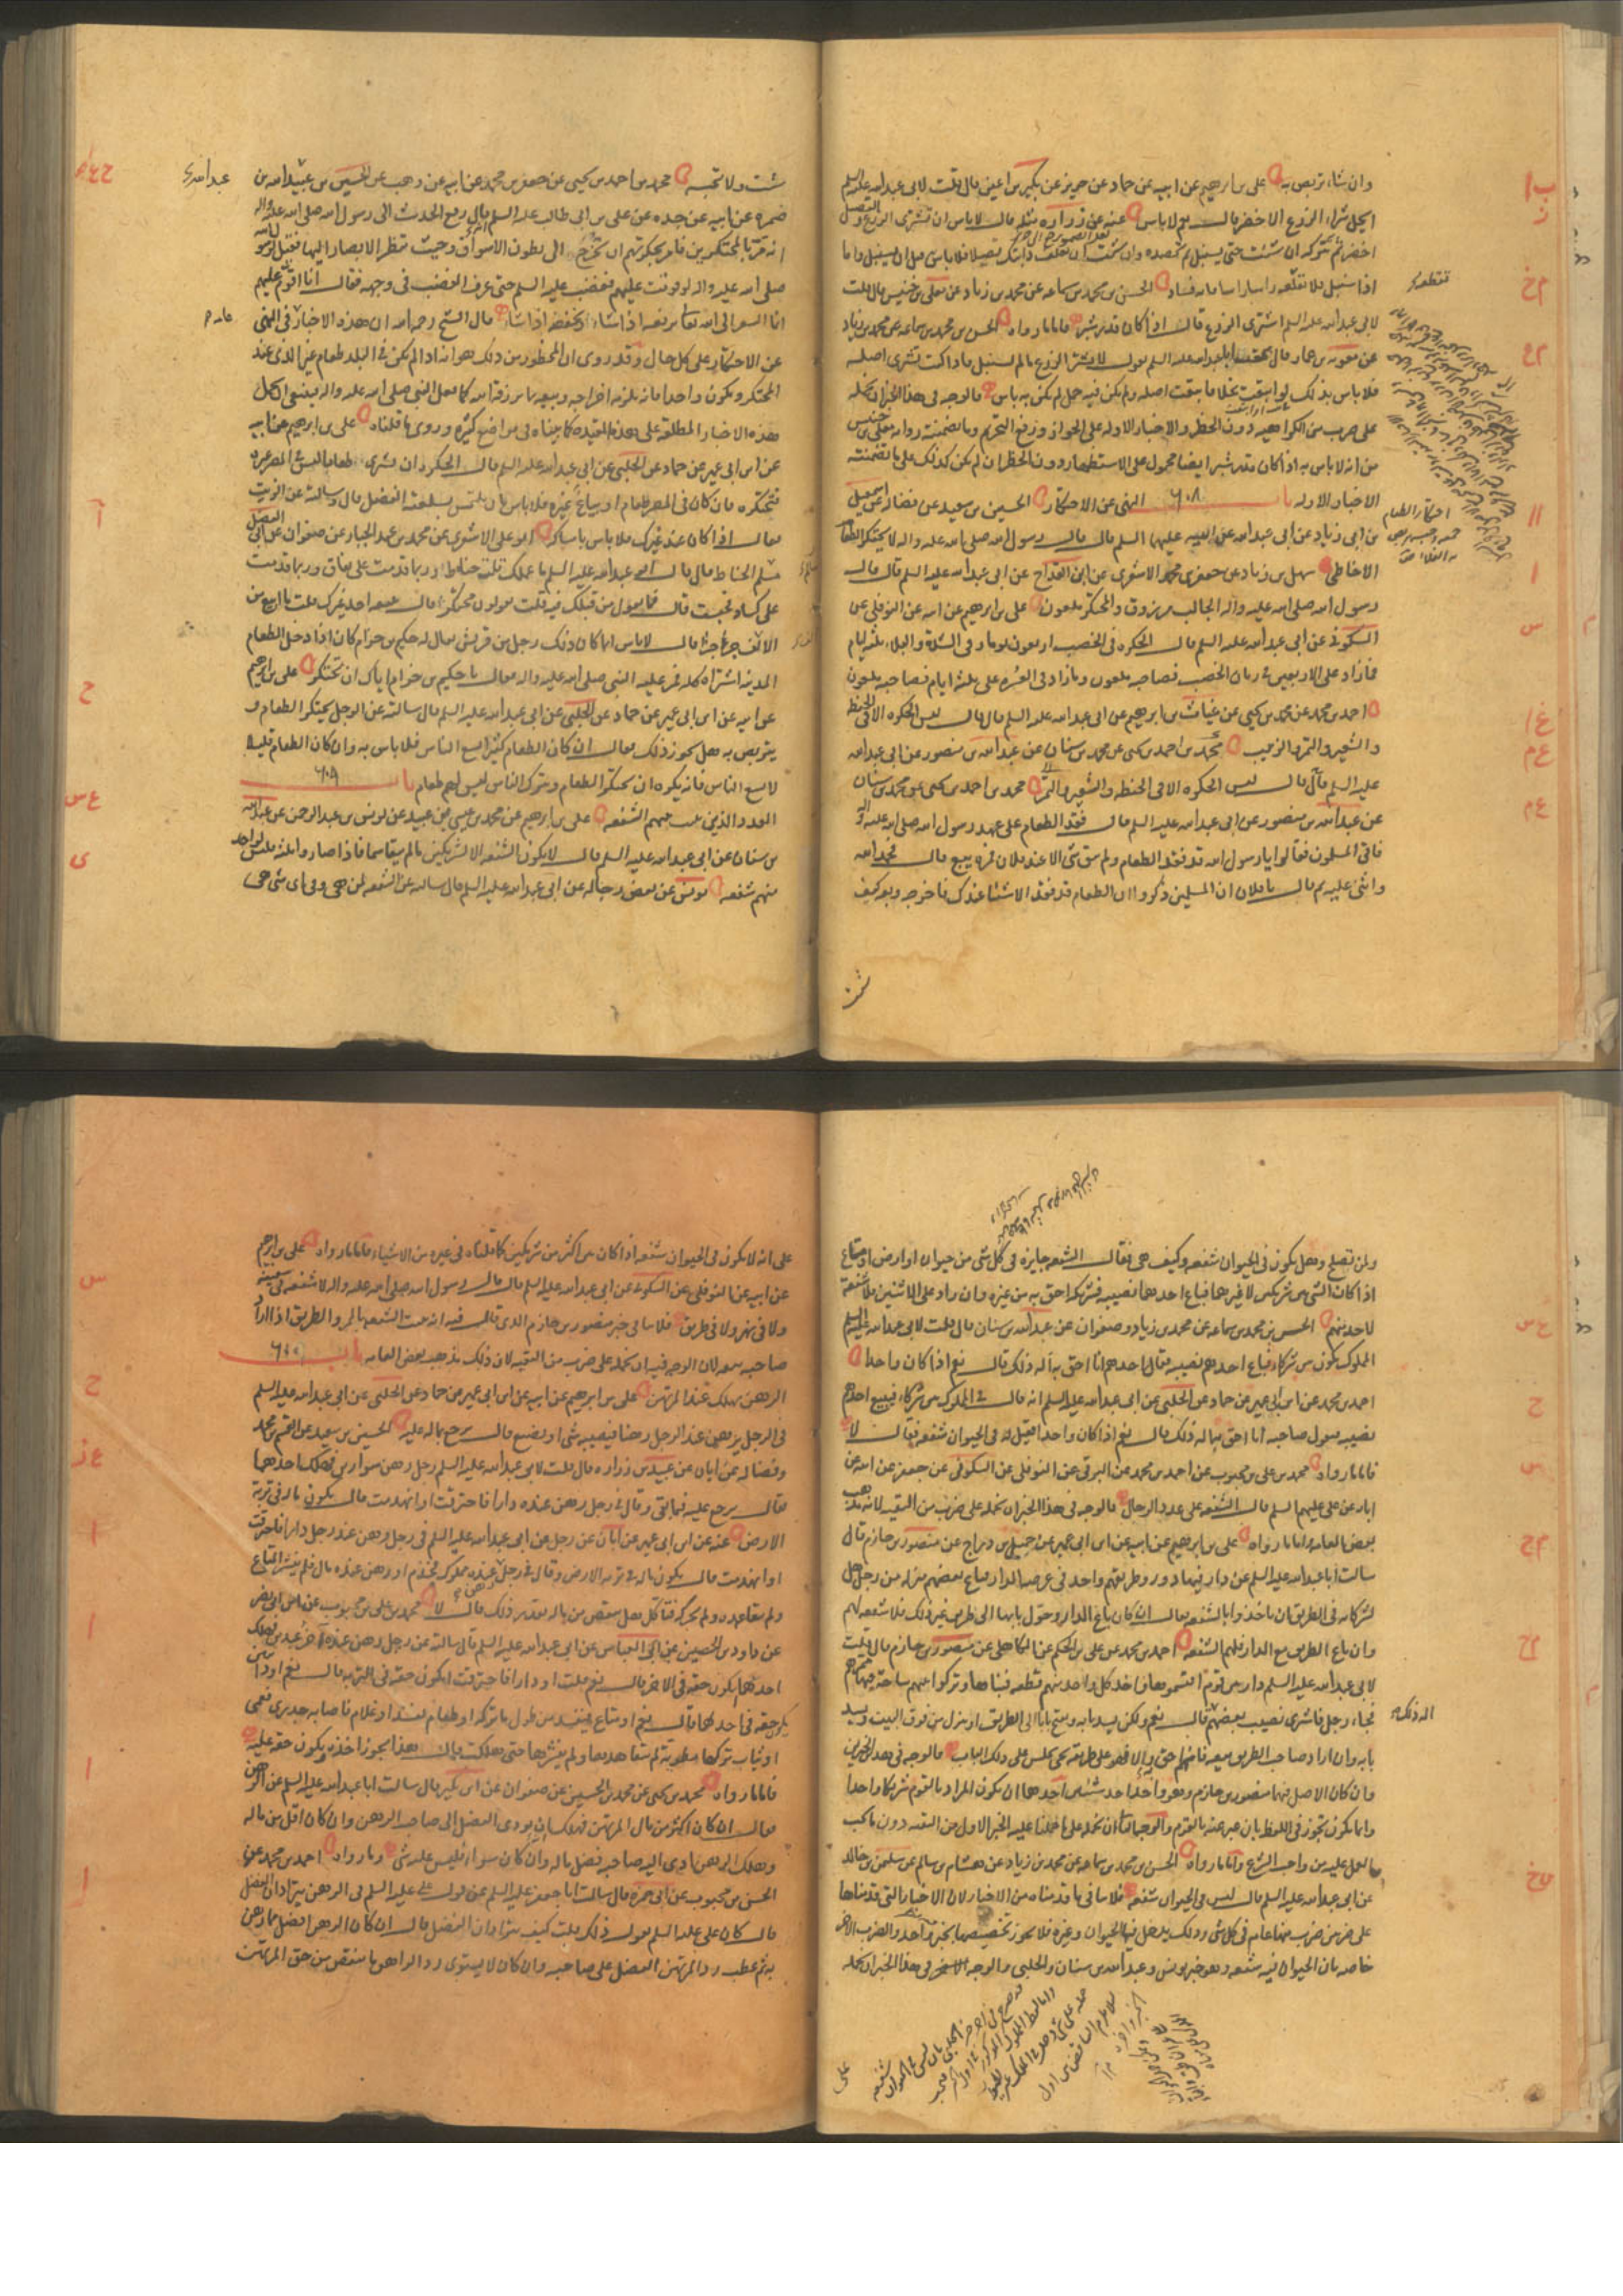 وان شاء تربص به على بن ابرهيم عن ابيه عن حماد عن حريز عن بكير بن اعين قال قلت لابي عبد الله عليه السلم
ايحل شراء الزرع الاخضر قال نعم لا باس عنه عن زراره مثله قال لا باس ان تشترى الزرع والقصيل
اخضر ثم تتركه ان شئت حتى يسنبل ثم تحصده وان شئت ان تعلف دابتك قصيلا فلا باس به قبل ان يسنبل واما
اذا سنبل فلا تعلفه راسا راسا فانه فساد الحسن بن محمد بن سماعه عن محمد بن زياد عن معلى بن خنيس قال قلت
لابي عبد الله عليه السلم اشترى الزرع قال اذا كان قدر شبر فاما ما رواه الحسن بن محمد بن سماعه عن محمد بن زياد
عن معويه بن عمار قال سمعت ابا عبد الله عليه السلم يقول لا تشتر الزرع ما لم يسنبل فاذا كنت تشترى اصله
فلا باس بذلك او ابتعت نخلا فابتعت اصله ولم يكن فيه حمل لم يكن به باس فالوجه فى هذا الخبر ان نحمله
على ضرب من الكراهيه دون الحظر والاخبار الاوله على الجواز ورفع التحريم وما تضمنته روايه معلى بن خنيس
من انه لا باس به اذا كان قدر شبر ايضا محمول على الاستظهار دون الحظر ان لم يكن كذلك على ما تضمنته
الاخبار الاوله باب النهى عن الاحتكار الحسين بن سعيد عن فضاله عن اسمعيل
بن ابى زياد عن ابى عبد الله عن ابيه عليهما السلم قال قال رسول الله صلى الله عليه واله لا يحتكر الطعام
الا خاطئ سهل بن زياد عن جعفر بن محمد الاشعرى عن ابن القداح عن ابى عبد الله عليه السلم قال قال
رسول الله صلى الله عليه واله الجالب مرزوق والمحتكر ملعون على بن ابرهيم عن ابيه عن النوفلى عن
السكونى عن ابى عبد الله عليه السلم قال الحكره فى الخصب اربعون يوما وفى الشدة والبلاء ثلثه ايام
فما زاد على الاربعين فى زمان الخصب فصاحبه ملعون وما زاد فى العسره على ثلثة ايام فصاحبه ملعون
احمد بن محمد عن محمد بن يحيى عن غياث بن ابرهيم عن ابى عبد الله عليه السلم قال قال ليس الحكره الا فى الحنطه
والشعير والتمر والزبيب محمد بن احمد بن يحيى عن محمد بن سنان عن عبد الله بن منصور عن ابى عبد الله
عليه السلم قال قال ليس الحكره الا فى الحنطه والشعير والتمر محمد بن احمد بن يحيى عن محمد بن سنان
عن عبد الله بن منصور عن ابى عبد الله عليه السلم قال فقد الطعام على عهد رسول الله صلى الله عليه واله
فاتى المسلمون فقالوا يا رسول الله قد فقد الطعام ولم يبق شئ الا عند فلان فمره يبيع قال فحمد الله
واثنى عليه ثم قال يا فلان ان المسلمين ذكروا ان الطعام قد فقد الا شيئا عندك فاخرجه وبعه كيف
شئت ولا تحبسه محمد بن احمد بن يحيى عن جعفر بن محمد عن ابيه عن وهب عن الحسين بن عبيد الله بن
ضمره عن ابيه عن جده عن على بن ابى طالب عليه السلم قال رفع الحديث الى رسول الله صلى الله عليه واله
انه مر بالمحتكرين فامر بحكرتهم ان تخرج الى بطون الاسواق وحيث تنظر الابصار اليها فقيل لرسول الله
صلى الله عليه واله لو قومت عليهم فغضب عليه السلم حتى عرف الغضب فى وجهه فقال انا اقوم عليهم
انما السعر الى الله تعالى يرفعه اذا شاء ويخفضه اذا شاء قال الشيخ رحمه الله ان هذه الاخبار فى النهى
عن الاحتكار على كل حال وقد روى ان المحظور من ذلك هو انه اذا لم يكن فى البلد طعام غير الذى عند
المحتكر ويكون واحدا فانه يلزمه اخراجه وبيعه بما يرزقه الله كما فعل النبى صلى الله عليه واله فينبغى ان نحمل
هذه الاخبار المطلقه على هذه المقيده كما بيناه فى مواضع كثيره وروى ما قلناه على بن ابرهيم عن ابيه
عن ابن ابى عمير عن حماد عن الحلبى عن ابى عبد الله عليه السلم قال الحكره ان تشترى طعاما ليس فى المصر غيره
فتحتكره فان كان فى المصر طعام او يباع غيره فلا باس بان يلتمس بسلعته الفضل قال وسالته عن الزيت
فقال اذا كان عند غيرك فلا باس بامساكه ابو على الاشعرى عن محمد بن عبد الجبار عن صفوان عن ابى الفضل
سلم الحناط قال قال لى ابو عبد الله عليه السلم ما عملك قلت حناط وربما قدمت على نفاق وربما قدمت
على كساد فحبست قال فما يقول من قبلك فيه قلت يقولون محتكر قال يبيعه احد غيرك قلت ما ابيع من
الالف جزء جزءا قال لا باس انما كان ذلك رجل من قريش يقال له حكيم بن حزام كان اذا دخل الطعام
المدينه اشتراه كله فمر عليه النبى صلى الله عليه واله فقال يا حكيم بن حزام اياك ان تحتكر على بن ابرهيم
عن ابيه عن ابن ابى عمير عن حماد عن الحلبى عن ابى عبد الله عليه السلم قال سالته عن الرجل يحتكر الطعام و
يتربص به هل يجوز ذلك فقال ان كان الطعام كثيرا يسع الناس فلا باس به وان كان الطعام قليلا
لا يسع الناس فانه يكره ان يحتكر الطعام ويترك الناس ليس لهم طعام باب
العدد الذين يثبت بينهم الشفعه على بن ابرهيم عن محمد بن عيسى بن عبيد عن يونس بن عبد الرحمن عن عبد الله
بن سنان عن ابى عبد الله عليه السلم قال لا يكون الشفعه الا لشريكين ما لم يتقاسما فاذا صاروا ثلثه فليس لواحد
منهم شفعه يونس عن بعض رجاله عن ابى عبد الله عليه السلم قال سالته عن الشفعه لمن هى وفى اى شئ هى
ولمن تصلح وهل يكون فى الحيوان شفعه وكيف هى فقال الشفعه جايزه فى كل شئ من حيوان او ارض او متاع
اذا كان الشئ بين شريكين لا غيرهما فباع احدهما نصيبه فشريكه احق به من غيره وان زاد على الاثنين فلا شفعة
لاحد منهم الحسن بن محمد بن سماعه عن محمد بن زياد وصفوان عن عبد الله بن سنان قال قلت لابى عبد الله عليه السلم
المملوك يكون بين شركاء فباع احدهم نصيبه فقال احدهم انا احق به اله ذلك قال نعم اذا كان واحدا
احمد بن محمد عن ابن ابى عمير عن حماد عن الحلبى عن ابى عبد الله عليه السلم انه قال فى المملوك بين شركاء فيبيع احدهم
نصيبه فيقول صاحبه انا احق به اله ذلك قال نعم اذا كان واحدا فقيل له فى الحيوان شفعه فقال لا
فاما ما رواه محمد بن على بن محبوب عن احمد بن محمد عن البرقى عن النوفلى عن السكونى عن جعفر عن ابيه عن
ابائه عن على عليهم السلم قال الشفعه على عدد الرجال فالوجه فى هذا الخبر ان نحمله على ضرب من التقيه لانه مذهب
بعض العامه واما ما رواه على بن ابرهيم عن ابيه عن ابن ابى عمير عن جميل بن دراج عن منصور بن حازم قال
سالت ابا عبد الله عليه السلم عن دار فيها دور وطريقهم واحد فى عرصه الدار فباع بعضهم منزله من رجل هل
لشركائه فى الطريق ان ياخذوا بالشفعه فقال ان كان باع الدار وحول بابها الى طريق غير ذلك فلا شفعه لهم
وان باع الطريق مع الدار فلهم الشفعه احمد بن محمد عن على بن الحكم عن الكاهلى عن منصور بن حازم قال قلت
لابى عبد الله عليه السلم دار بين قوم اقتسموها فاخذ كل واحد منهم قطعه فبناها وتركوا بينهم ساحة فيها ممرهم
فجاء رجل فاشترى نصيب بعضهم قال نعم ولكن يسد بابه ويفتح بابا الى الطريق او ينزل من فوق البيت ويسد
بابه وان اراد صاحب الطريق بيعه فانهم احق به والا فهو على طريقه يجئ يجلس على ذلك الباب فالوجه فى هذين الخبرين
وان كان الاصل فيهما منصور بن حازم وهو واحد احد شيئين احدهما ان يكون المراد بالقوم شريكا واحدا
وانما يكون تجوز فى اللفظ بان عبر عنه بالقوم والوجه الثانى ان نحمله على ما حملنا عليه الخبر الاول من التقيه دون ما يجب
العمل عليه من واجب الشرع واما ما رواه الحسن بن محمد بن سماعه عن محمد بن زياد عن هشام بن سالم عن سليمن بن خالد
عن ابى عبد الله عليه السلم قال ليس فى الحيوان شفعه فلا ينافى ما قدمناه من الاخبار لان الاخبار التى قدمناها
على ضربين ضرب منها عام فى كل شئ وذلك يدخل فيها الحيوان وغيره فلا يجوز تخصيصها بخبر واحد والضرب الاخر
خاصه بان الحيوان فيه شفعه وهو خبر يونس وعبد الله بن سنان والحلبى والوجه الاخر فى هذا الخبر ان نحمله
على انه لا يكون فى الحيوان شفعه اذا كان بين اكثر من شريكين كما قلناه فى غيره من الاشياء فاما ما رواه على بن ابرهيم
عن ابيه عن النوفلى عن السكونى عن ابى عبد الله عليه السلم قال قال رسول الله صلى الله عليه واله لا شفعه فى سفينه
ولا فى نهر ولا فى طريق فلا ينافى خبر منصور بن حازم الذى قال فيه انه يثبت الشفعه بالممر والطريق اذا اراد
صاحبه بيعه لان الوجه فيه ان نحمله على ضرب من التقيه لان ذلك مذهب بعض العامه باب
الرهن يهلك عند المرتهن على بن ابرهيم عن ابيه عن ابن ابى عمير عن حماد عن الحلبى عن ابى عبد الله عليه السلم
فى الرجل يرهن عند الرجل رهنا فيصيبه شئ او يضيع قال يرجع بماله عليه الحسين بن سعيد عن القسم بن محمد
وفضاله عن ابان عن عبيد بن زراره قال قلت لابى عبد الله عليه السلم رجل رهن سوارين فهلك احدهما
فقال يرجع عليه فيما بقى وقال فى رجل رهن عنده دارا فاحترقت او انهدمت قال يكون ماله فى تربة
الارض عنه عن ابن ابى عمير عن ابان عن رجل عن ابى عبد الله عليه السلم فى رجل رهن عند رجل دارا فاحترقت
او انهدمت قال يكون ماله فى تربه الارض وقال فى رجل رهن عنده مملوك فجذم او رهن عنده متاع فلم ينشر المتاع
ولم يتعاهده ولم يحركه فتاكل هل ينقص من ماله بقدر ذلك قال لا محمد بن على بن محبوب عن ابن ابى نصر
عن داود بن الحصين عن ابى العباس عن ابى عبد الله عليه السلم قال سالته عن رجل رهن عنده اخر عبدين فهلك
احدهما ايكون حقه فى الاخر قال نعم قلت او دارا فاحترقت ايكون حقه فى التربه قال نعم او دابتين
يكون حقه فى احدهما قال نعم او متاع فيفسد من طول ما تركه او طعام يفسد او غلام فاصابه جدرى فعمى
او ثياب تركها مطويه لم يتعاهدها ولم ينشرها حتى هلكت قال هذا يجوز اخذه ويكون حقه عليه
فاما ما رواه محمد بن يحيى عن محمد بن الحسين عن صفوان عن ابن بكير قال سالت ابا عبد الله عليه السلم عن الرهن
فقال ان كان اكثر من مال المرتهن فهلك ان يودى الفضل الى صاحب الرهن وان كان اقل من ماله
وهلك الرهن ادى اليه صاحبه فضل ماله وان كان سواء فليس عليه شئ وما رواه احمد بن محمد عن
الحسن بن محبوب عن ابى حمزه قال سالت ابا جعفر عليه السلم عن قول على عليه السلم فى الرهن يترادان الفضل
قال كان على عليه السلم يقول ذلك قلت كيف يترادان الفضل قال ان كان الرهن افضل مما رهن
به ثم عطب رد المرتهن الفضل على صاحبه وان كان لا يسوى رد الراهن ما ينقص من حق المرتهن